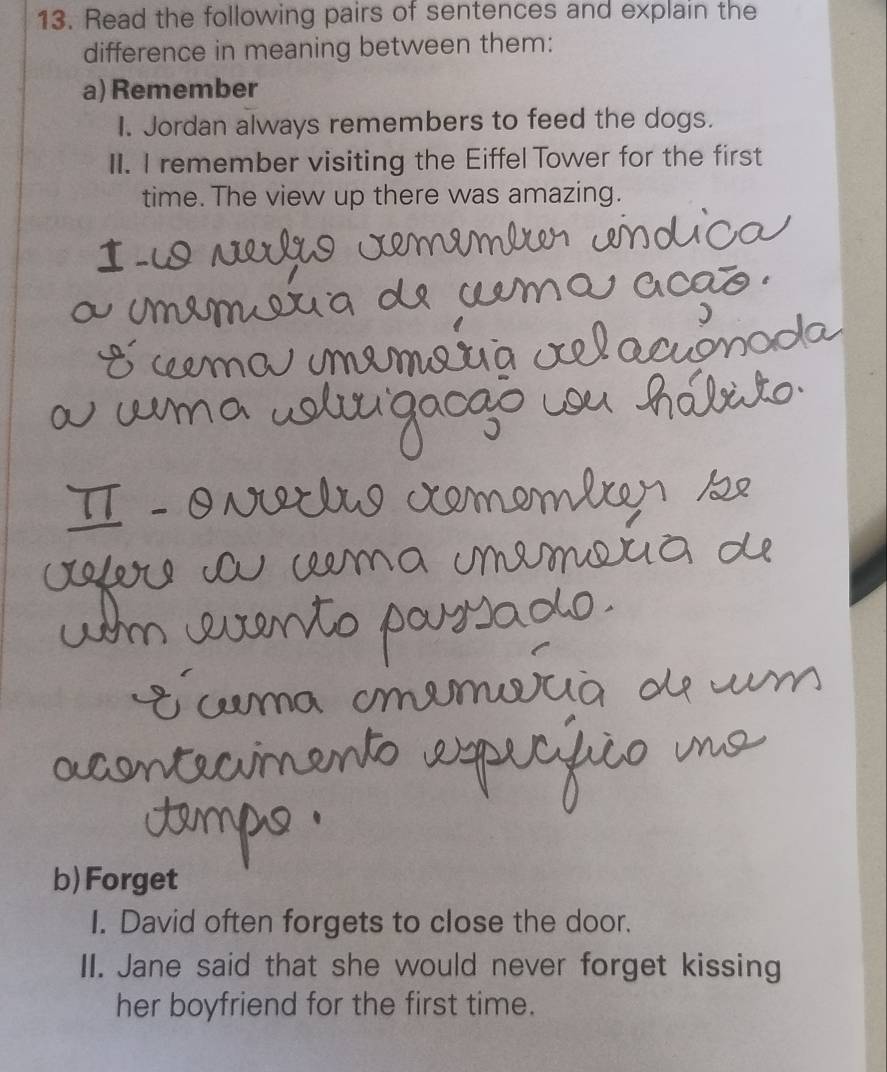 13. Read the following pairs of sentences and explain the
difference in meaning between them:
a) Remember
I. Jordan always remembers to feed the dogs.
II. I remember visiting the Eiffel Tower for the first
time. The view up there was amazing.
I - o verbo remember indica
a memória de uma ação.
é uma memória relacionada
a uma obrigação ou hábito.
II - o verbo remember se
refere a uma memória de
um evento passado.
é uma memória de um
acontecimento específico no
tempo.
b) Forget
I. David often forgets to close the door.
II. Jane said that she would never forget kissing
her boyfriend for the first time.